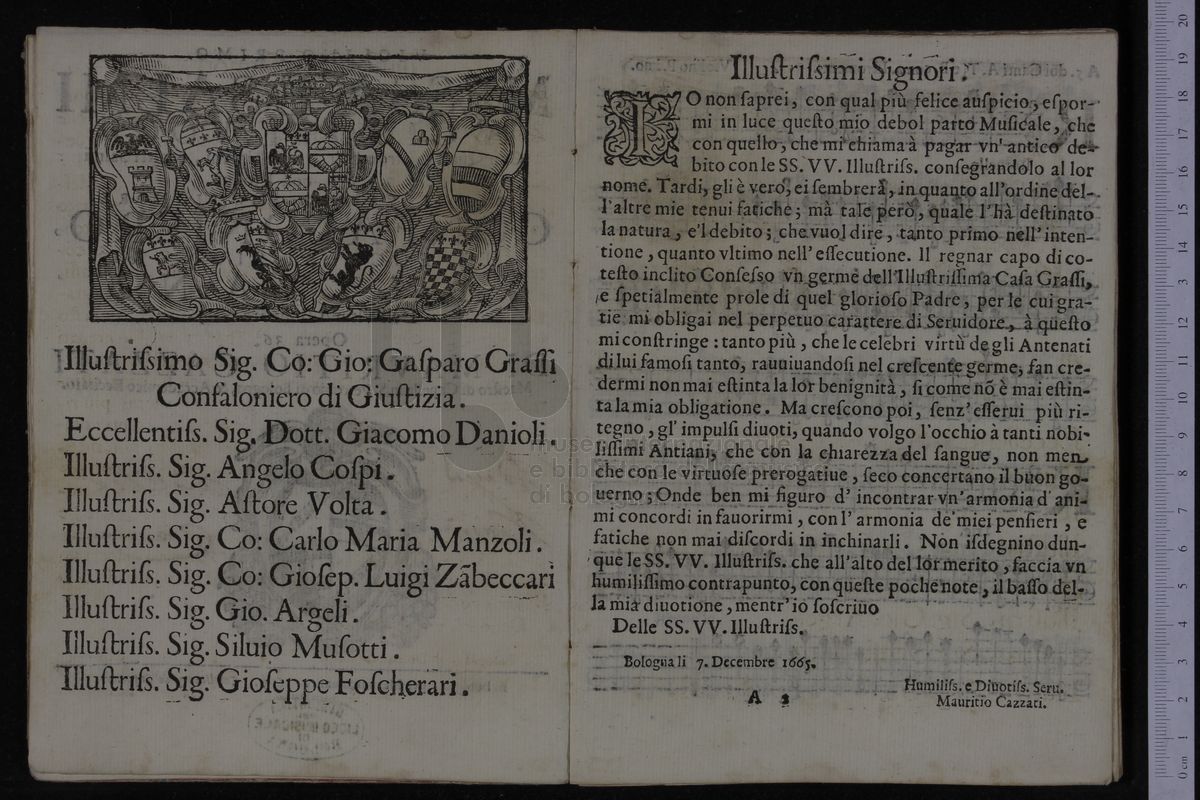 Illuſtriſsimo Sig. Co: Gio: Gaſparo Graſſi
Confaloniero di Giuſtizia.
Eccellentiſs. Sig. Dott. Giacomo Danioli.
Illuſtriſs. Sig. Angelo Coſpi.
Illuſtriſs. Sig. Aſtore Volta.
Illuſtriſs. Sig. Co: Carlo Maria Manzoli.
Illuſtriſs. Sig. Co: Gioſep. Luigi Zãbeccari
Illuſtriſs. Sig. Gio. Argeli.
Illuſtriſs. Sig. Siluio Muſotti.
Illuſtriſs. Sig. Gioſeppe Foſcherari.
Illuſtriſsimi Signori.
IO non ſaprei, con qual più felice auſpicio, eſpor-
mi in luce queſto mio debol parto Muſicale, che
con quello, che mi chiama à pagar vn' antico de-
bito con le SS. VV. Illuſtriſs. conſegrandolo al lor
nome. Tardi, gli è vero, ei ſembrerà, in quanto all'ordine del-
l'altre mie tenui fatiche; mà tale però, quale l'hà deſtinato
la natura, e'l debito; che vuol dire, tanto primo nell' inten-
tione, quanto vltimo nell' eſſecutione. Il regnar capo di co-
teſto inclito Conſeſſo vn germe dell'Illuſtriſſima Caſa Graſſi,
e ſpetialmente prole di quel glorioſo Padre, per le cui gra-
tie mi obligai nel perpetuo carattere di Seruidore, à queſto
mi conſtringe: tanto più, che le celebri virtù de gli Antenati
di lui famoſi tanto, rauuiuandoſi nel creſcente germe, fan cre-
dermi non mai eſtinta la lor benignità, ſi come nõ è mai eſtin-
ta la mia obligatione. Ma creſcono poi, ſenz' eſſerui più ri-
tegno, gl' impulſi diuoti, quando volgo l'occhio à tanti nobi-
liſſimi Antiani, che con la chiarezza del ſangue, non men
che con le virtuoſe prerogatiue, ſeco concertano il buon go-
uerno; Onde ben mi figuro d' incontrar vn'armonia d' ani-
mi concordi in fauorirmi, con l' armonia de' miei penſieri, e
fatiche non mai diſcordi in inchinarli. Non iſdegnino dun-
que le SS. VV. Illuſtriſs. che all'alto del lor merito, faccia vn
humiliſſimo contrapunto, con queſte poche note, il baſſo del-
la mia diuotione, mentr' io ſoſcriuo
Delle SS. VV. Illuſtriſs.
Bologna li 7. Decembre 1665.
Humiliſs. e Diuotiſs. Seru.
Mauritio Cazzati.
A 2